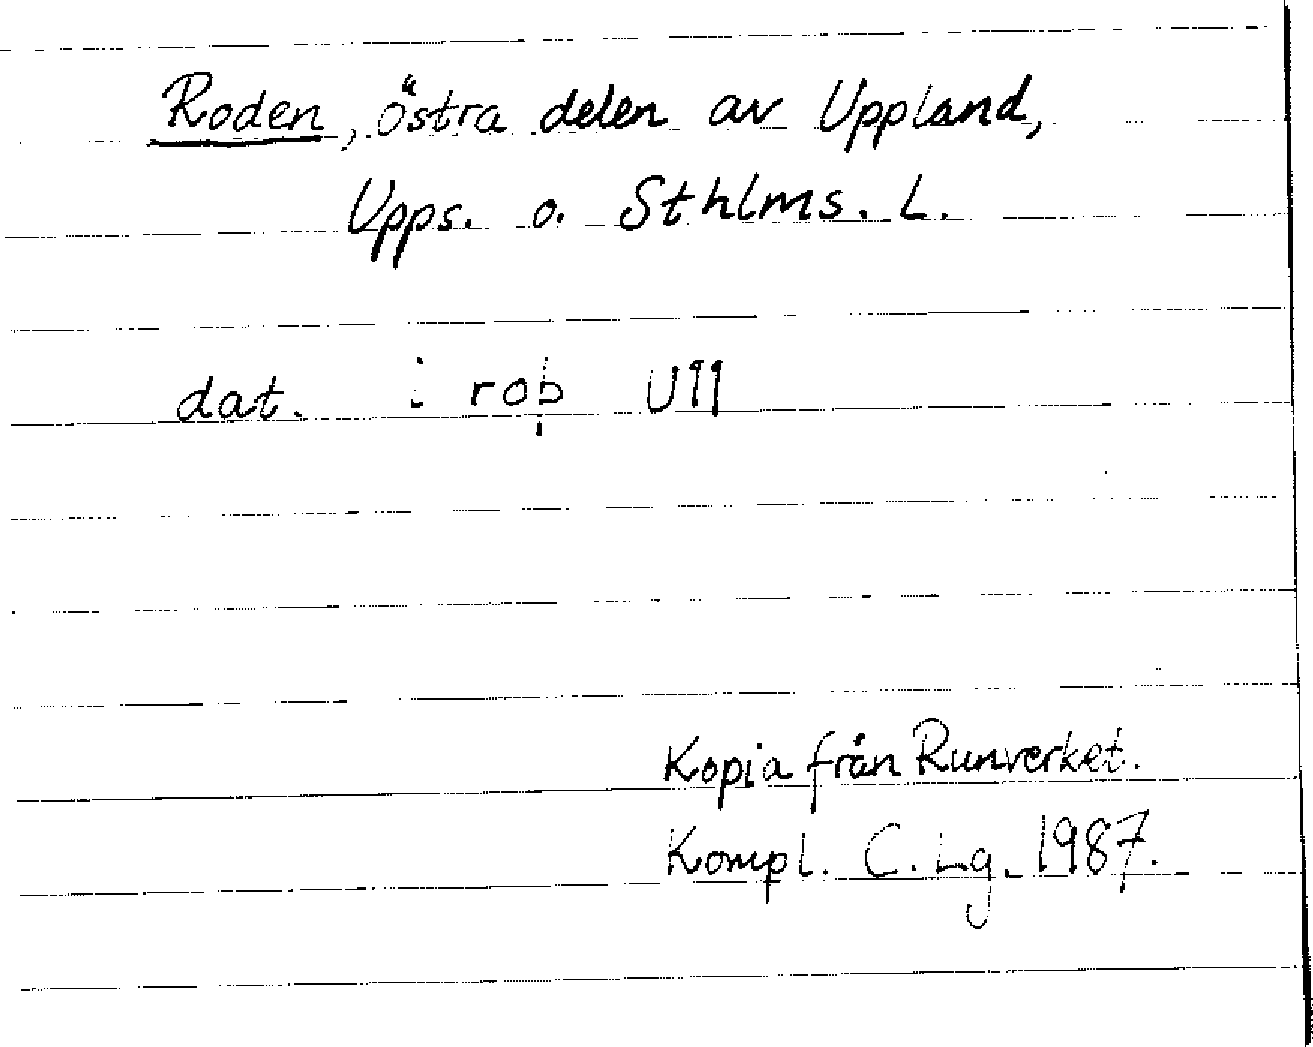 Roden, östra delen av Uppland,
Upps. o. Sthlms. L.
dat. i roþ U11
Kopia från Runverket.
Kompl. C. Lg. 1987.